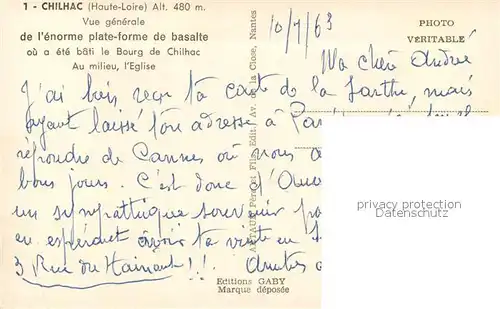 1 - CHILHAC (Haute-Loire) Alt. 480 m.
Vue générale
de l'énorme plate-forme de basalte
où a été bâti le Bourg de Chilhac
Au milieu, l'Eglise
PHOTO
VÉRITABLE
10/7/63
Ma chère Andrée
J'ai bien reçu ta carte de la Sarthe, mais
ayant laissé ton adresse à
répondre de Cannes où nous
bons jours. C'est donc d'
un sympathique souvenir
en espérant avoir ta visite en
3 Rue du Hainaut!!. Amitiés
Père et Fils, Edit., Av. de la Close, Nantes
Editions GABY
Marque déposée
privacy protection
Datenschutz